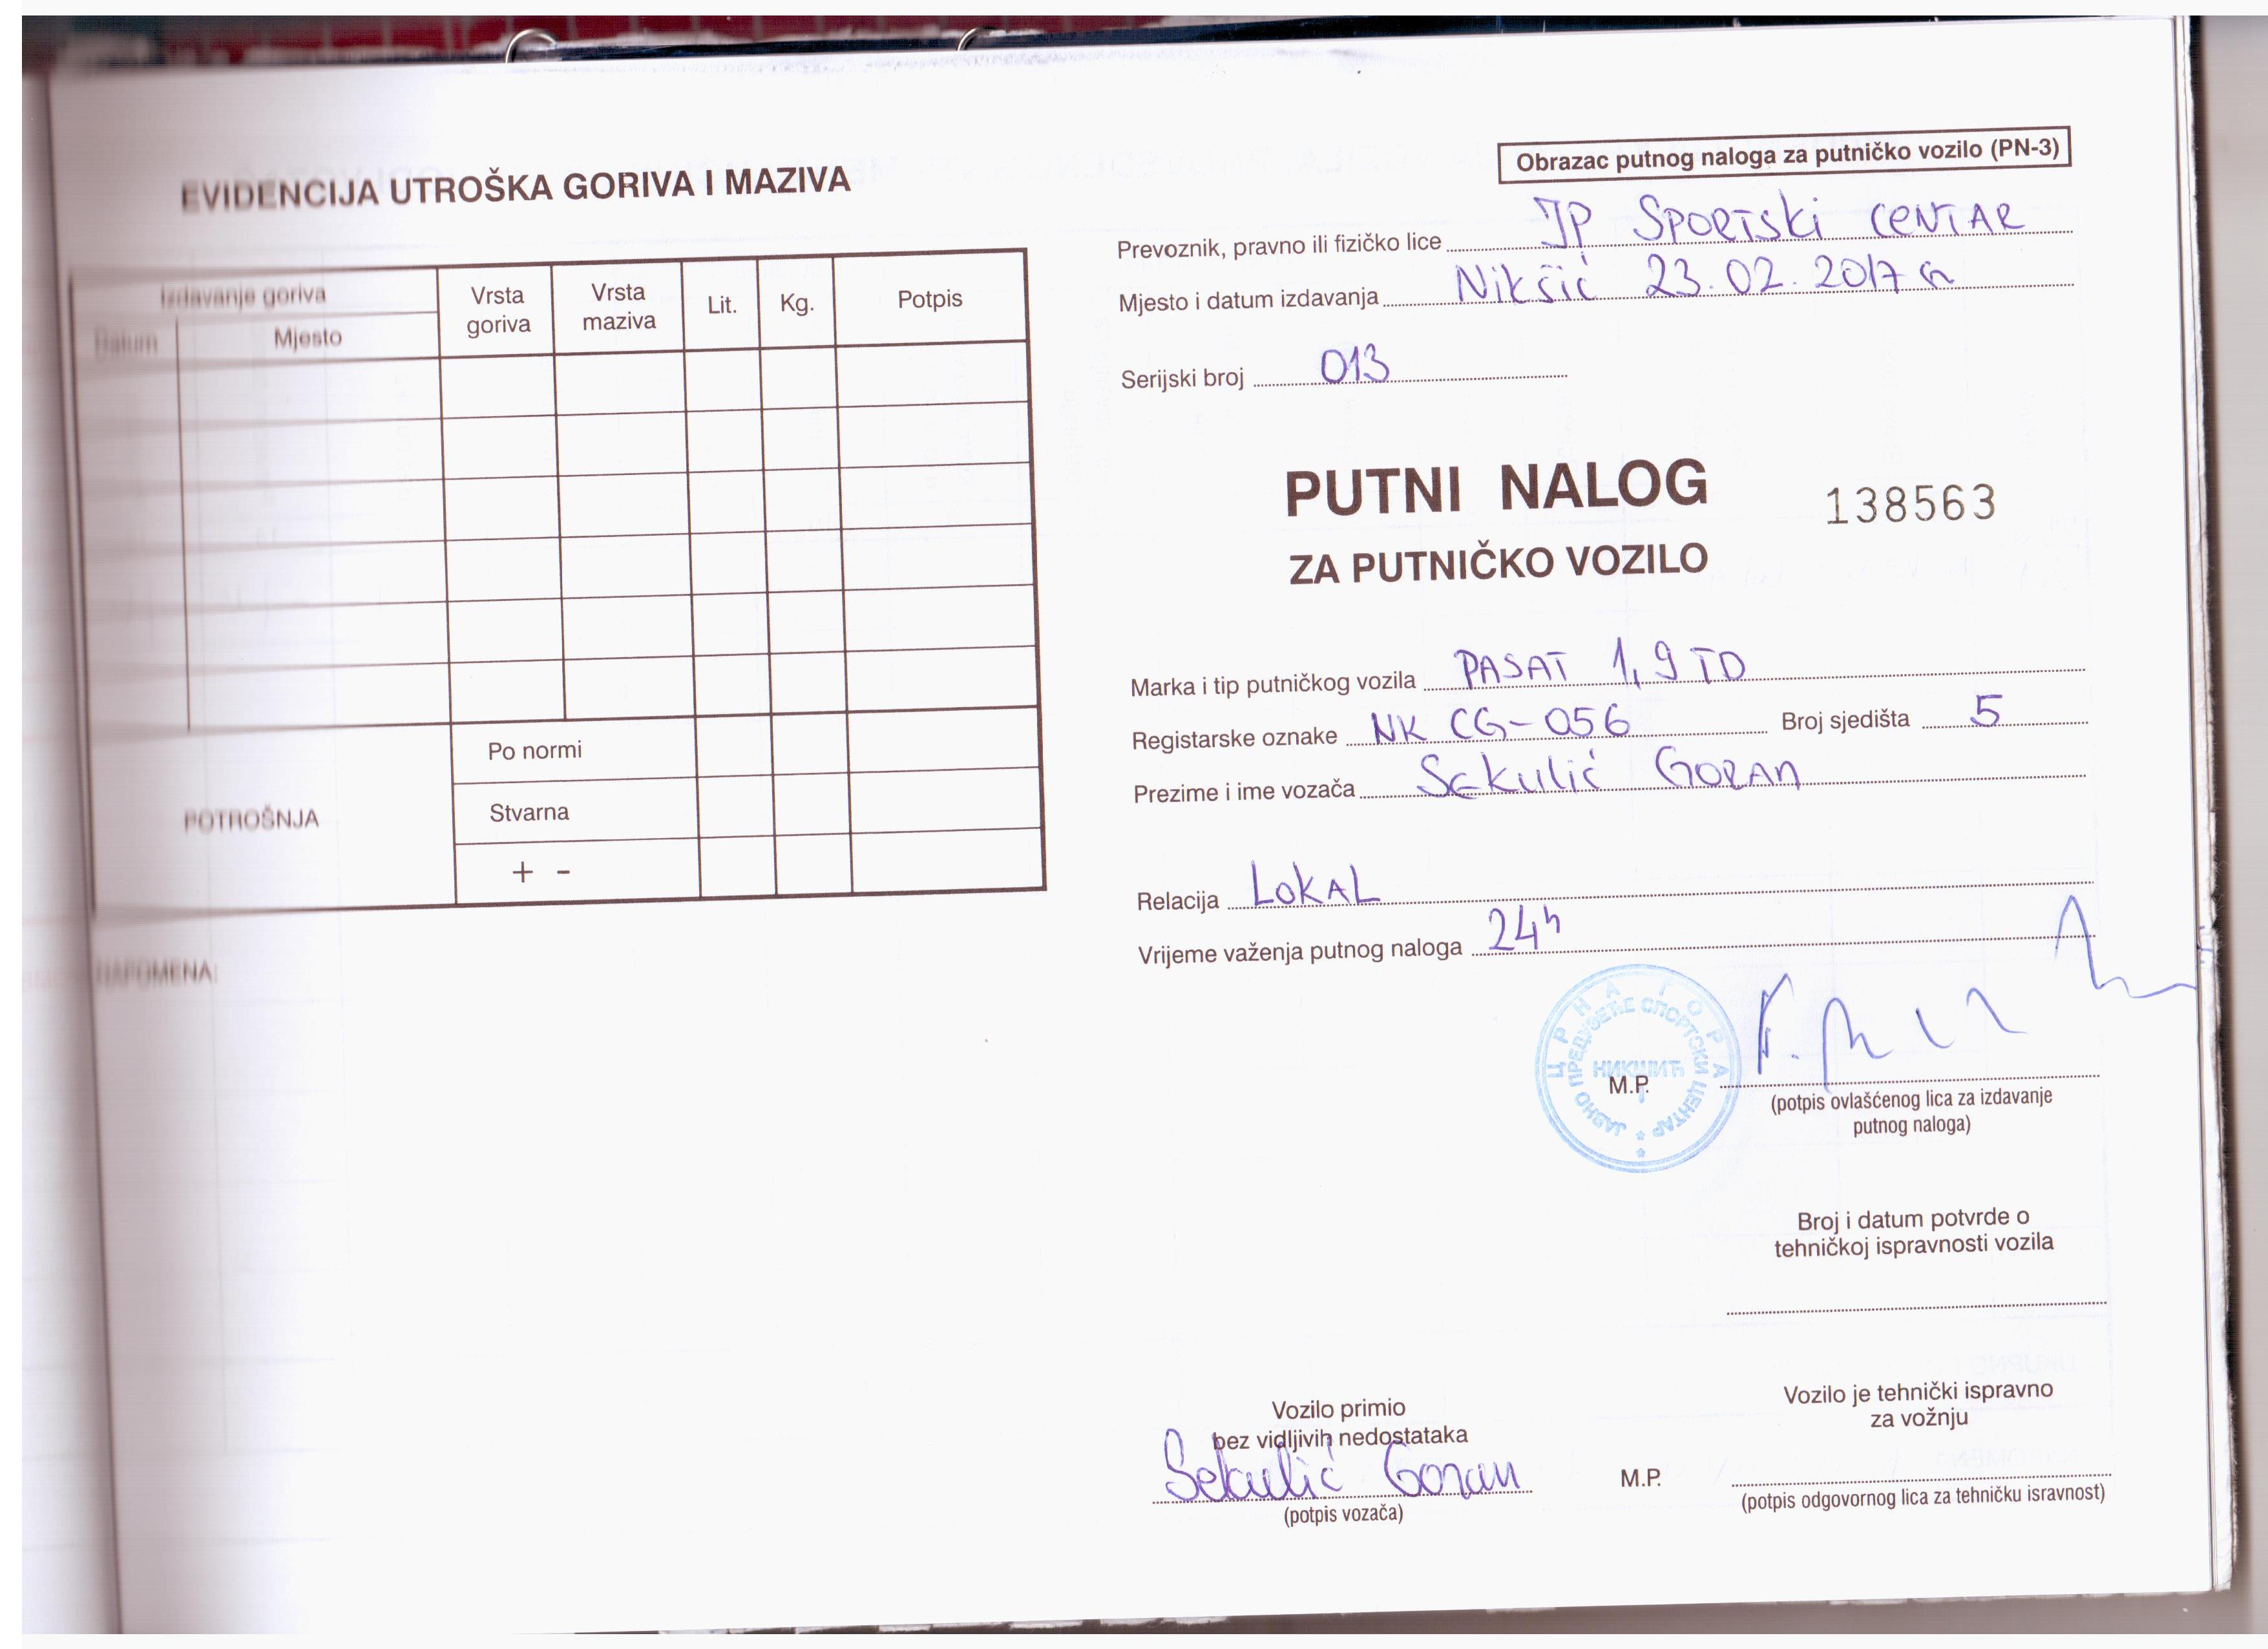 EVIDENCIJA UTROŠKA GORIVA I MAZIVA
Izdavanje goriva
Datum
Mjesto
Vrsta goriva
Vrsta maziva
Lit.
Kg.
Potpis
POTROŠNJA
Po normi
Stvarna
+ -
NAPOMENA:
Obrazac putnog naloga za putničko vozilo (PN-3)
Prevoznik, pravno ili fizičko lice JP SPORTSki CENTAR
Mjesto i datum izdavanja Nikšić 23.02.2017
Serijski broj 013
PUTNI NALOG
138563
ZA PUTNIČKO VOZILO
Marka i tip putničkog vozila PASAT 1,9 TD
Registarske oznake NK CG-056 Broj sjedišta 5
Prezime i ime vozača Sekulić GORAN
Relacija LOKAL
Vrijeme važenja putnog naloga 24h
ЦРНА ГОРА
ЈАВНО ПРЕДУЗЕЋЕ СПОРТСКИ ЦЕНТАР
НИКШИЋ
M.P.
(potpis ovlašćenog lica za izdavanje
putnog naloga)
Broj i datum potvrde o
tehničkoj ispravnosti vozila
Vozilo primio
bez vidljivih nedostataka
Sekulić Goran
(potpis vozača)
Vozilo je tehnički ispravno
za vožnju
M.P.
(potpis odgovornog lica za tehničku isravnost)